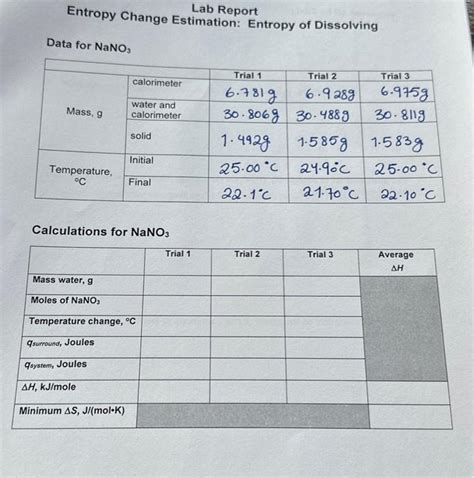 Lab Report
Entropy Change Estimation: Entropy of Dissolving
Data for NaNO₃
Trial 1 Trial 2 Trial 3
Mass, g calorimeter 6.781g 6.928g 6.975g
water and calorimeter 30.806g 30.488g 30.811g
solid 1.492g 1.585g 1.583g
Temperature, ºC Initial 25.00°C 24.90°C 25.00°C
Final 22.1°C 21.70°C 22.10°C
Calculations for NaNO₃
Trial 1 Trial 2 Trial 3 Average ΔH
Mass water, g
Moles of NaNO₃
Temperature change, ºC
qsurround, Joules
qsystem, Joules
ΔH, kJ/mole
Minimum ΔS, J/(mol•K)